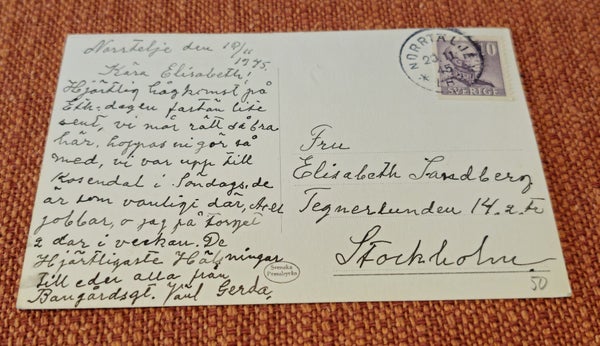 Norrtelje den 18/11
1945.
Kära Elisabeth!
Hjärtlig hågkomst på
Eth-dagen fastän lite
sent, vi mår rätt så bra
här, hoppas ni gör så
med, vi var upp till
Rosendal i Söndags, de
är som vanligt där, Axel
jobbar, o jag på torget
2 dar i veckan. De
Hjärtligaste Hälsningar
till eder alla från
Bangårdsgt. Gerda,
Svenska
Pressbyrån
NORRTÄLJE
20 11
45
10
SVERIGE
Fru
Elisabeth Sandberg
Tegnerlunden 14. 2. tr
Stockholm
50